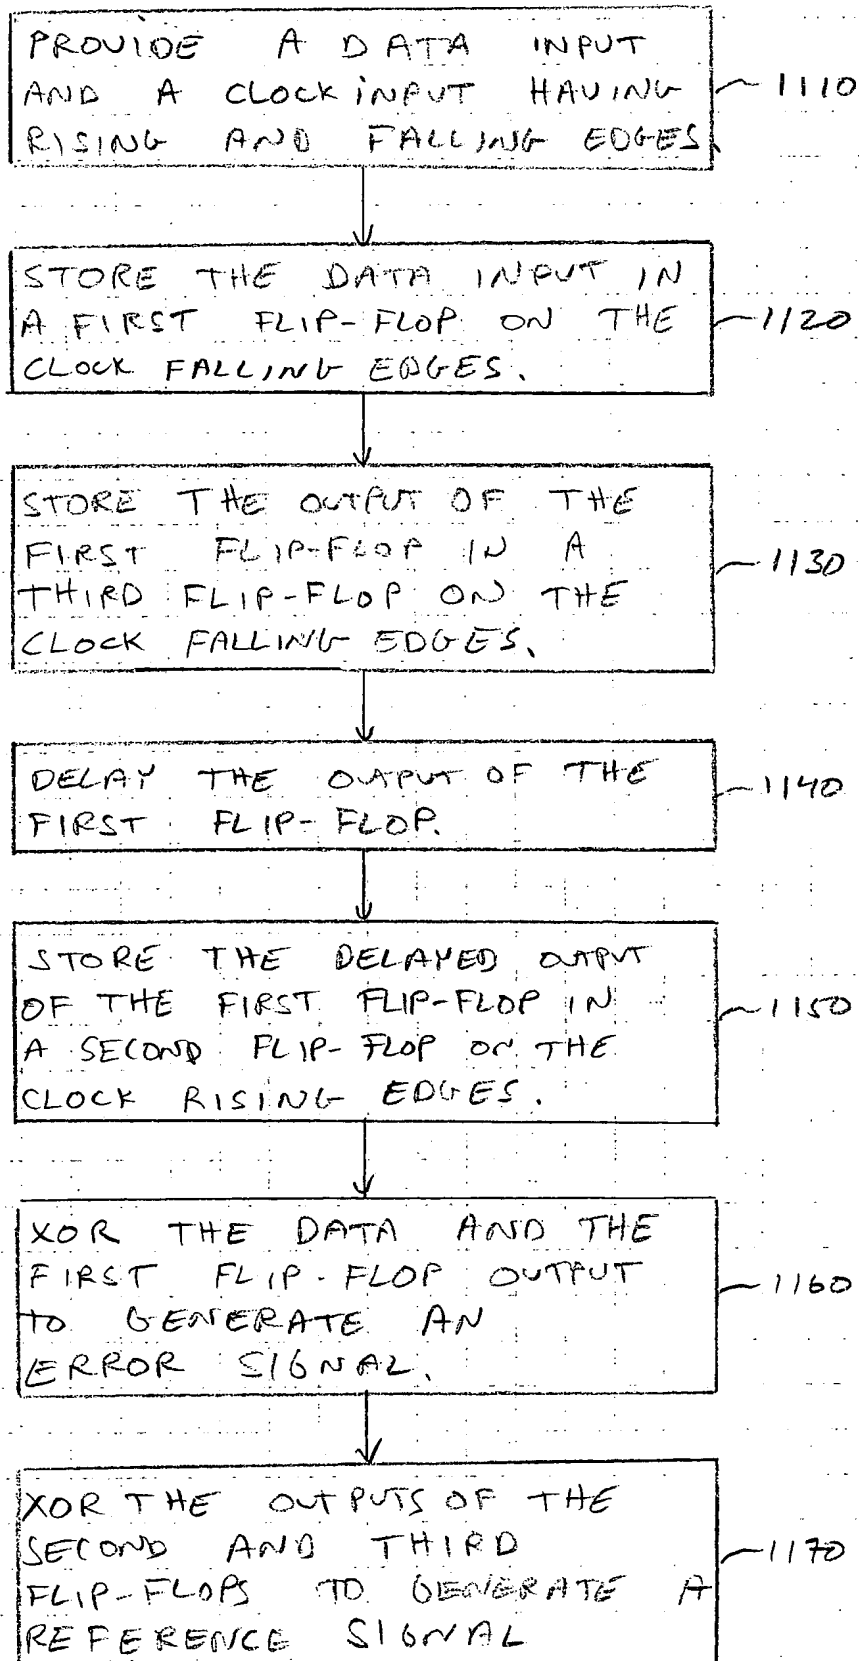 PROVIDE A DATA INPUT
AND A CLOCK INPUT HAVING
RISING AND FALLING EDGES.
1110
STORE THE DATA INPUT IN
A FIRST FLIP-FLOP ON THE
CLOCK FALLING EDGES.
1120
STORE THE OUTPUT OF THE
FIRST FLIP-FLOP IN A
THIRD FLIP-FLOP ON THE
CLOCK FALLING EDGES.
1130
DELAY THE OUTPUT OF THE
FIRST FLIP-FLOP.
1140
STORE THE DELAYED OUTPUT
OF THE FIRST FLIP-FLOP IN
A SECOND FLIP-FLOP ON THE
CLOCK RISING EDGES.
1150
XOR THE DATA AND THE
FIRST FLIP-FLOP OUTPUT
TO GENERATE AN
ERROR SIGNAL.
1160
XOR THE OUTPUTS OF THE
SECOND AND THIRD
FLIP-FLOPS TO GENERATE A
REFERENCE SIGNAL
1170